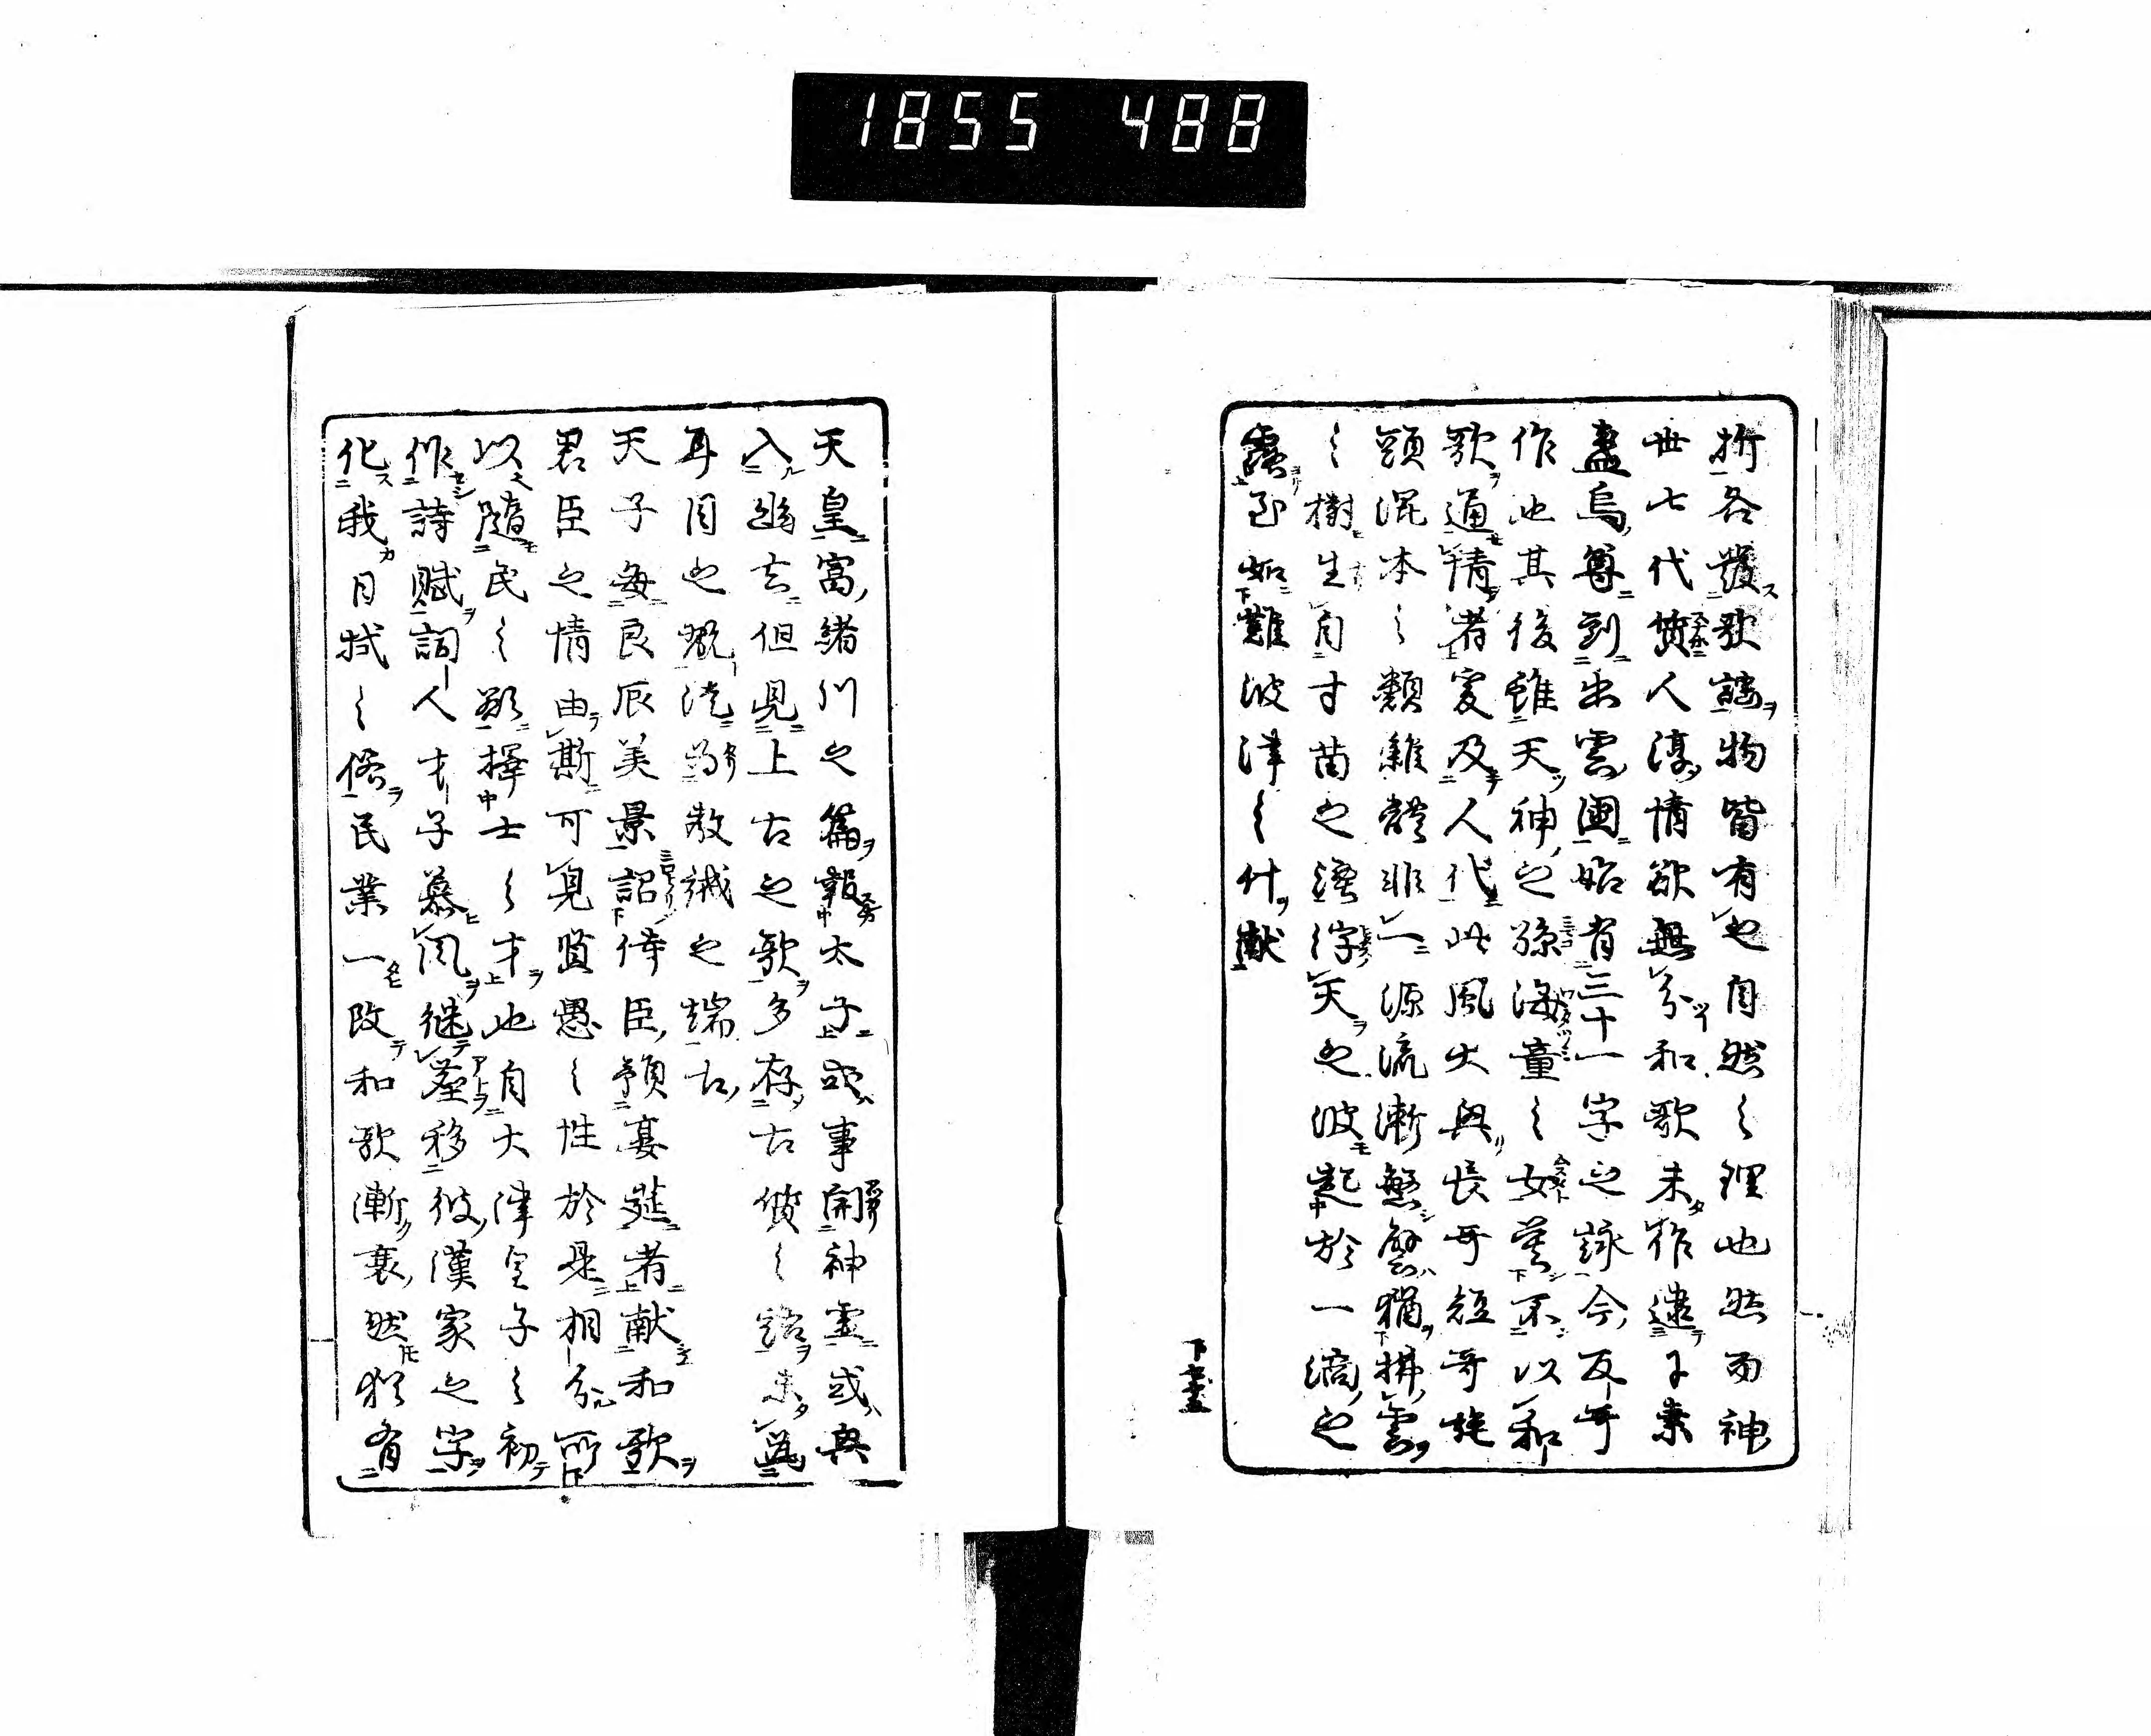 1855 488
折各發歌謡物皆有也自然之理也然而神
世七代質人淳情欲無分和歌未作逮于素
盞烏尊到出雲国始有三十一字之詠今反哥
作也其後雖天神之孫海童之女莫不以和
歌通情者爰及人代此風大興長哥短哥旋
頭混本之類雜體非一源流漸繁譬猶拂雲
之樹生自寸苗之浮天之波起於一滴之
露至如難波津之什献
下
天皇富緒川之篇報太子或事関神霊或興
入幽玄但見上古之歌多存古質之語未為
耳目之翫徒為教誡之端古
天子毎良辰美景詔侍臣預宴莚者献和歌
君臣之情由斯可見賢愚之性於是相分所
以随民之欲擇士之才也自大津皇子之初
作詩賦詞人才子慕風継塵移彼漢家之字
化我日域之俗民業一改和歌漸衰然猶有